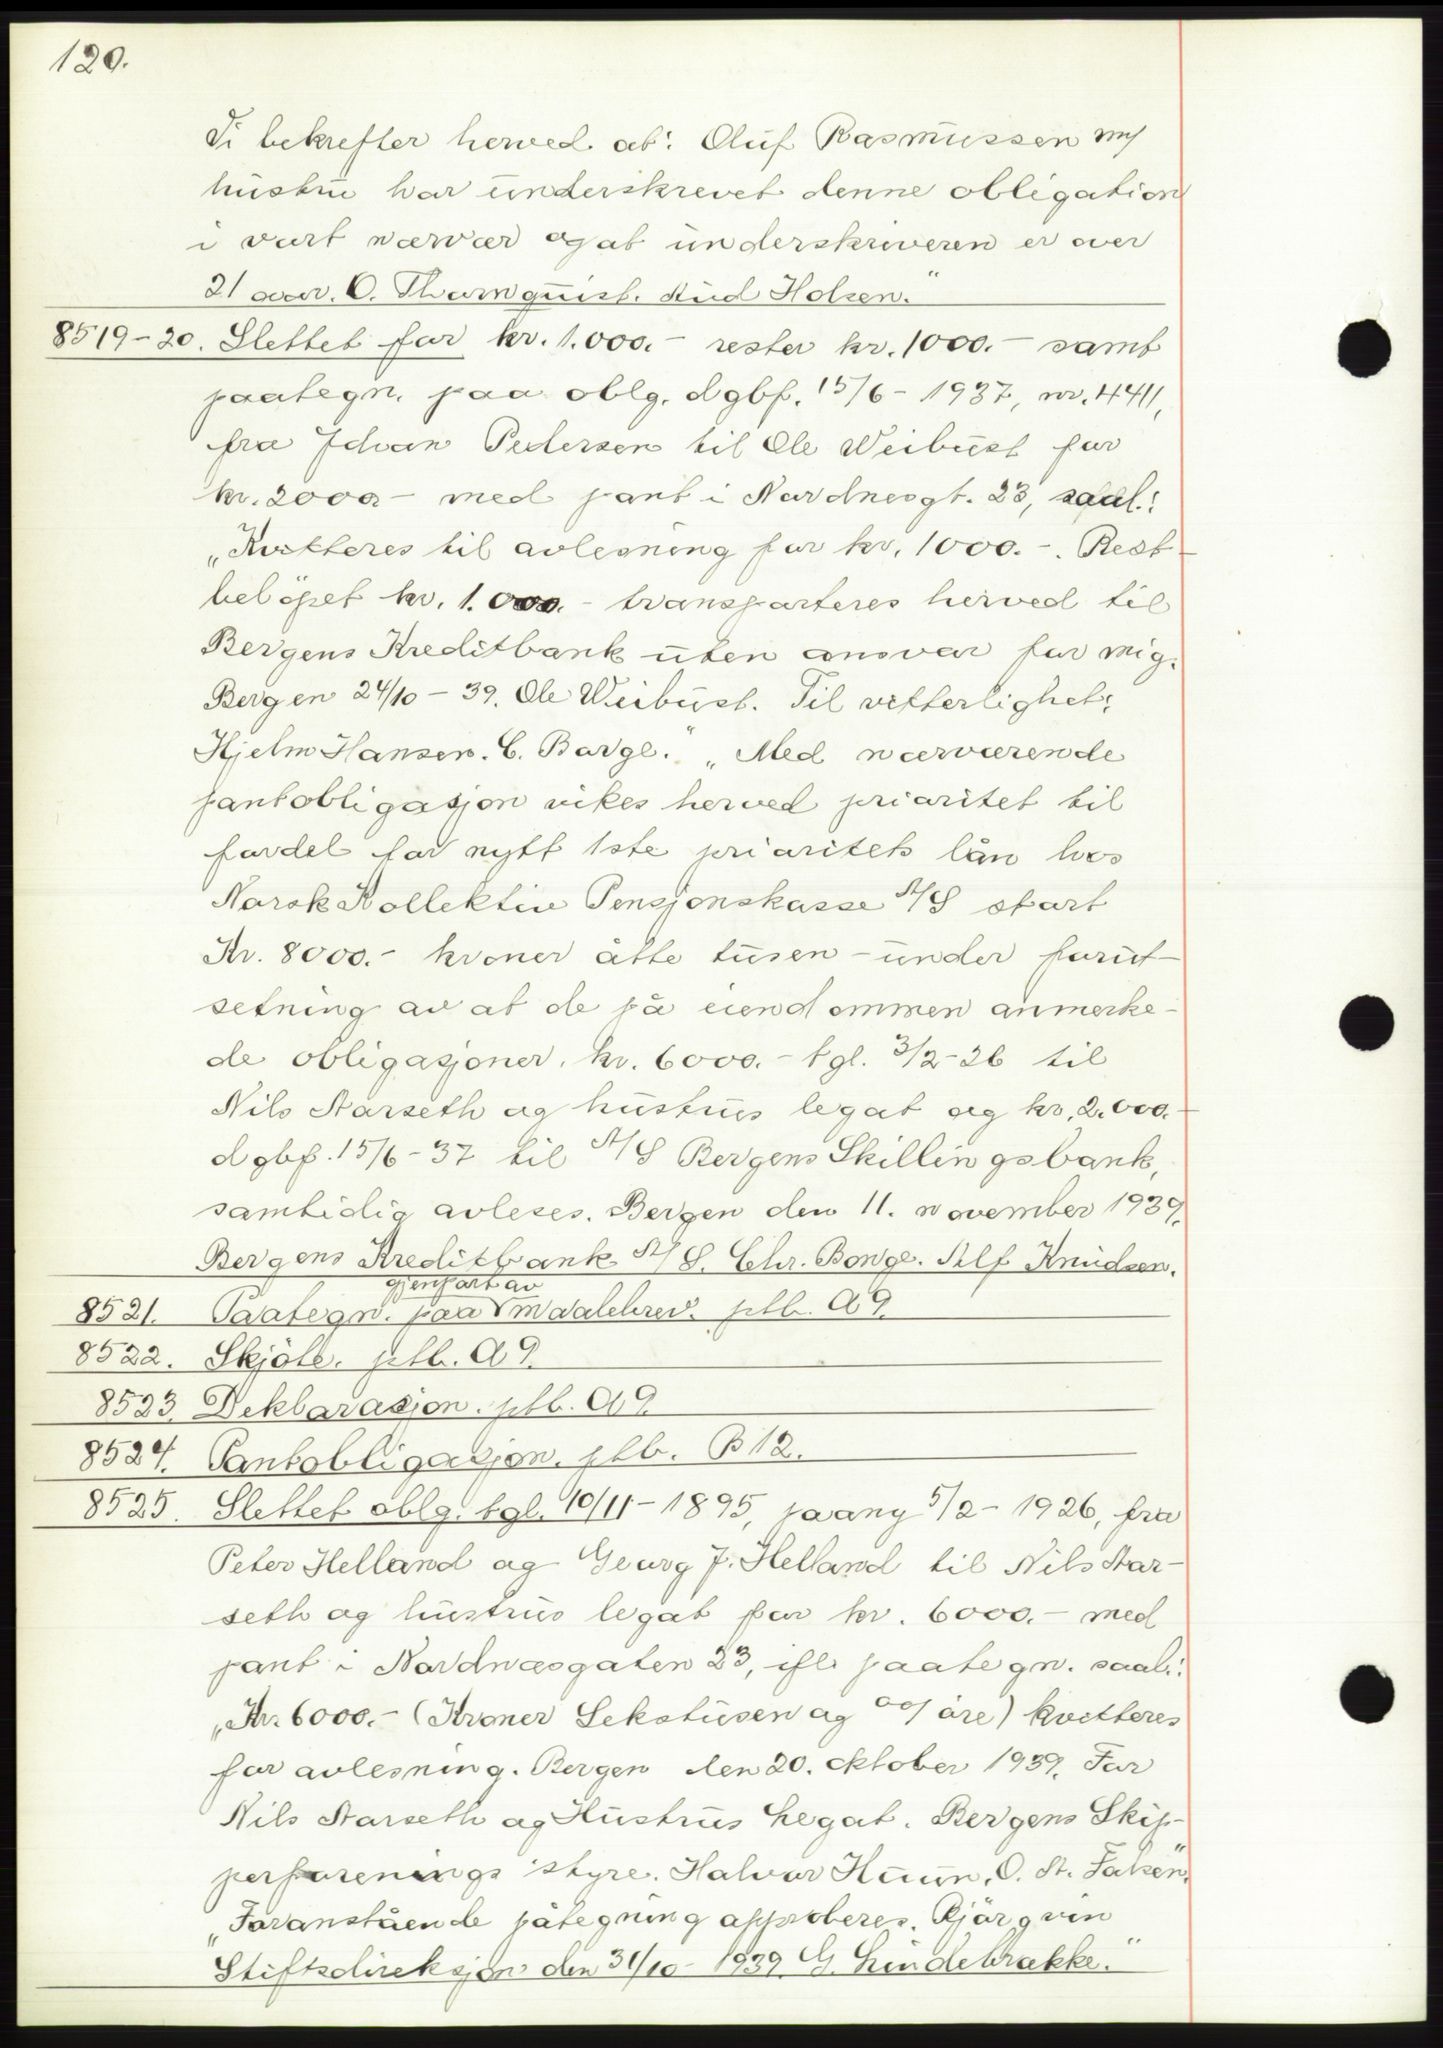 120.
Vi bekrefter herved at: Oluf Rasmussen m/
hustru har underskrevet denne obligation
i vort nærvær og at underskriveren er over
21 aar. O. Thornquist. Aud Holsen."
8519-20. Slettet for kr. 1.000.- rester kr. 1000.- samt
paategn. paa oblg. dgbf. 15/6-1937, nr. 4411,
fra Johan Pedersen til Ole Weibust for
kr. 2000.- med pant i Nordnesgt. 23, saal.:
„Kvitteres til avlesning for kr. 1000.-. Rest-
beløpet kr. 1.000.- transporteres herved til
Bergens Kreditbank uten ansvar for mig.
Bergen 24/10-39. Ole Weibust. Til vitterlighet:
Hjelm Hansen. C. Borge." „Med nærværende
pantobligasjon vikes herved prioritet til
fordel for nytt 1ste prioritets lån hos
Norsk Kollektiv Pensjonskasse A/S stort
Kr. 8000.- kroner åtte tusen - under forut-
setning av at de på eiendommen anmerke-
de obligasjoner, kr. 6000.- tgl. 3/2-26 til
Nils Storseth og hustrus legat og kr. 2.000.-
dgbf. 15/6-37 til A/S Bergens Skillingsbank,
samtidig avleses. Bergen den 11. november 1939.
Bergens Kreditbank A/S. Chr. Bonge. Alf Knudsen.
gjenpart av
8521. Paategn. paa maalebrev. ptb. A9.
8522. Skjöte. ptb. A9.
8523. Deklarasjon. ptb. A9.
8524. Pantobligasjon. ptb. B12.
8525. Slettet oblg. tgl. 10/11-1895, paany 5/2-1926, fra
Peter Helland og Georg J. Helland til Nils Stor-
seth og hustrus legat for kr. 6000.- med
pant i Nordnæsgaten 23, ifl. paategn. saal.:
„Kr. 6000.- (Kroner Sekstusen og 00/ öre) kvitteres
for avlesning. Bergen den 20. oktober 1939. For
Nils Storseth og Hustrus Legat. Bergens Skip-
perforenings styre. Halvor Huun, O. St. Falsen".
„Foranstående påtegning approberes. Bjørgvin
Stiftsdireksjon den 31/10-1939. G. Lindebrække."